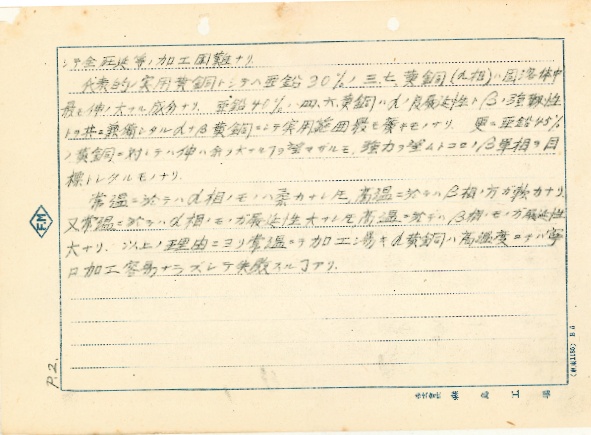 シテ全圧共等ノ加工困難ナリ.
代表的ノ実用黄銅トシテハ亜鉛30%ノ三七黄銅(α相)ハ固溶体中
最モ伸ノ大ナル成分ナリ. 亜鉛40%ノ四,六黄銅ハαノ展延性トβノ強靱性
トヲ共ニ兼備シタルα+β黄銅ニシテ実用範囲最モ廣キモノナリ. 更ニ亜鉛45%
ノ黄銅ニ対シテハ伸ハ余リ大ナルヲ望マザルモ, 強力ヲ望ムトコロノβ単相ヲ目
標トシタルモノナリ.
常温ニ於テハα相ノモノハ柔カナレ圧, 高温ニ於テハβ相ノ方ガ軟カナリ.
又常温ニ於テハα相ノモノガ展延性大ナレ圧高温ニ於テハβ相ノモノガ展延性
大ナリ. 以上ノ理由ニヨリ常温ニテ加工易キα黄銅ハ高温度ニテハ寧
ロ加工容易ナラズシテ失敗スルヿアリ.
F.M
P.2.
株式会社 島 工 場
B5